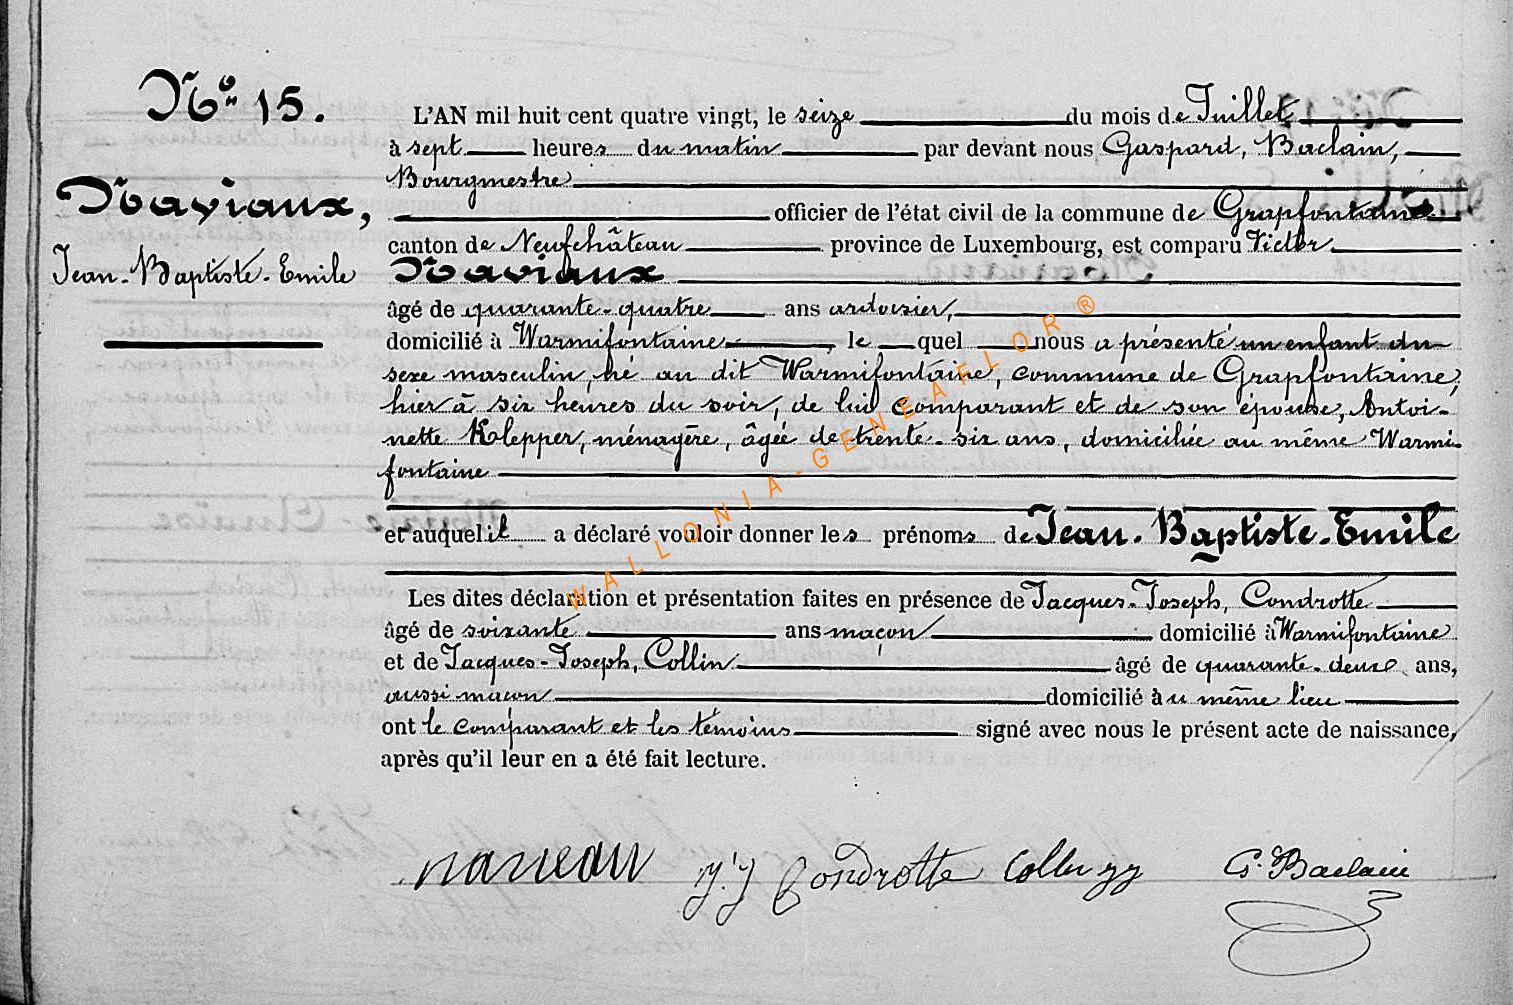 No 15.
Naviaux,
Jean-Baptiste-Emile
L'AN mil huit cent quatre vingt, le seize du mois de Juillet
à sept heures du matin par devant nous Gaspard, Baclain,
Bourgmestre
officier de l'état civil de la commune de Grapfontaine
canton de Neufchâteau province de Luxembourg, est comparu Victor
Naviaux
âgé de quarante-quatre ans ardoisier,
domicilié à Warmifontaine, le quel nous a présenté un enfant du
sexe masculin, né au dit Warmifontaine, commune de Grapfontaine,
hier à six heures du soir, de lui comparant et de son épouse, Antoi-
nette Klepper, ménagère, âgée de trente-six ans, domiciliée au même Warmi-
fontaine
et auquel il a déclaré vouloir donner les prénoms de Jean-Baptiste-Emile
Les dites déclaration et présentation faites en présence de Jacques-Joseph, Condrotte
âgé de soixante ans maçon domicilié à Warmifontaine
et de Jacques-Joseph, Collin âgé de quarante-deux ans,
aussi maçon domicilié au même lieu
ont le comparant et les témoins signé avec nous le présent acte de naissance,
après qu'il leur en a été fait lecture.
J.J Condrotte Collin JJ G. Baclain
WALLONIA-GENEAFLOR ®